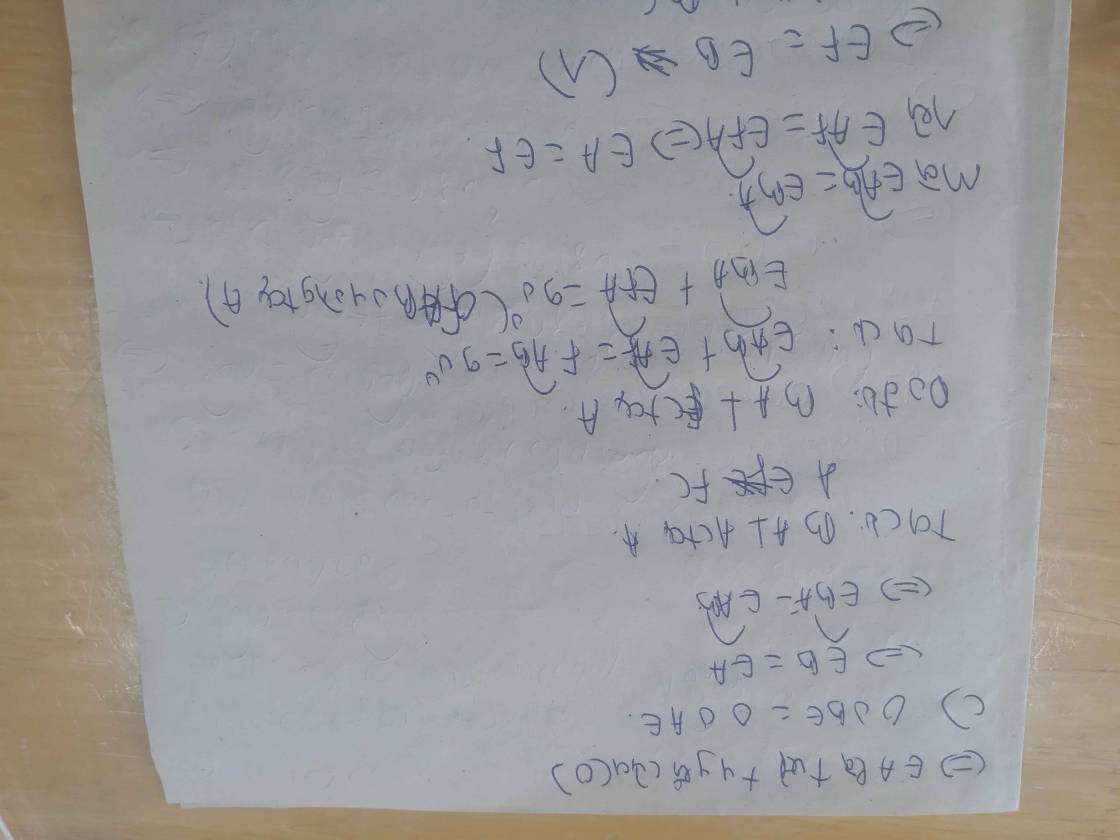 (=) EA là tiếp tuyến của (O)
c) OBE = OAE.
(=) EB = EA
(=) EBA = EAB
Ta có: BA ⊥ AC tại A.
A ∈ FC.
Do đó: BA ⊥ FC tại A.
Ta có: EAB + EAF = FAB = 90°
EBA + EFA = 90° (FAB vuông tại A).
Mà EAB = EBA.
nên EAF = EFA (=) EA = EF.
(=) EF = EB (1)